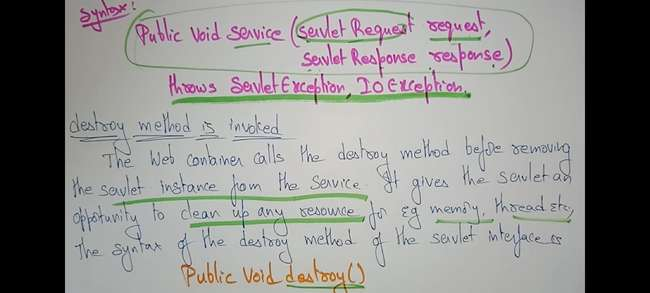 Syntax:
Public Void Service (Servlet Request request,
Servlet Response response)
throws ServletException, IOException.
destroy method is invoked
The Web container calls the destroy method before removing
the servlet instance from the service. It gives the servlet an
opportunity to clean up any resource for eg memory, thread etc,
The syntax of the destroy method of the servlet interface is
Public Void destroy()